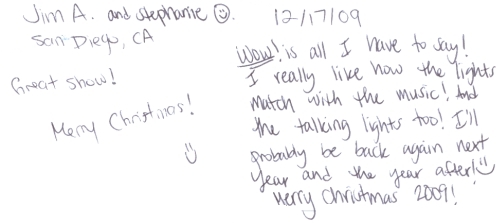 Jim A. and stephanie ☺.
San Diego, CA
Great show!
Merry Christmas!
☺
12/17/09
Wow! is all I have to say!
I really like how the lights
match with the music! And
the talking lights too! I'll
probably be back again next
year and the year after!☺
Merry Christmas 2009!